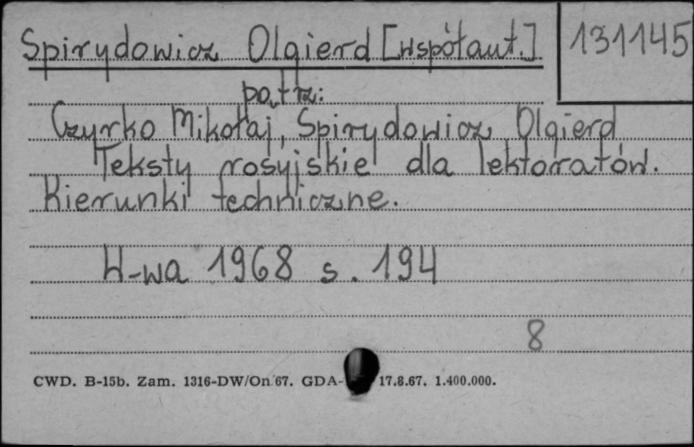 Spirydowicz Olgierd [współaut.]
131145
patrz:
Czyrko Mikołaj, Spirydowicz Olgierd
Teksty rosyjskie dla lektoratów.
Kierunki techniczne.
W-wa 1968 s. 194
8
CWD. B-15b. Zam. 1316-DW/On/67. GDA- 17.8.67. 1.400.000.